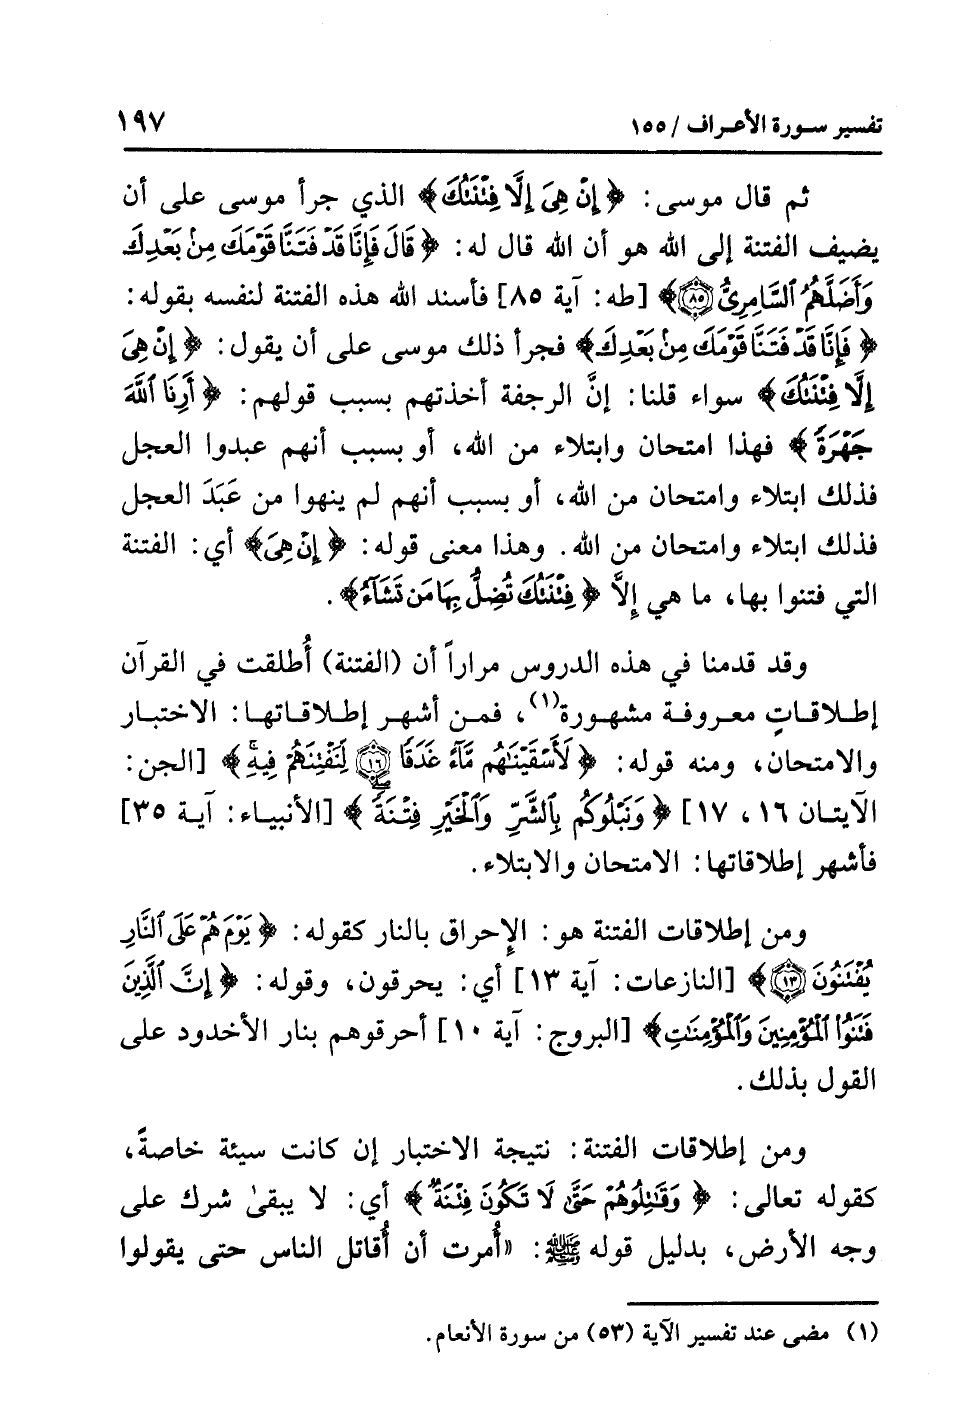 تفسير سورة الأعراف / ١٥٥ ١٩٧
ثم قال موسى: ﴿إِنْ هِىَ إِلَّا فِتْنَتُكَ﴾ الذي جرأ موسى على أن
يضيف الفتنة إلى الله هو أن الله قال له: ﴿قَالَ فَإِنَّا قَدْ فَتَنَّا قَوْمَكَ مِنۢ بَعْدِكَ
وَأَضَلَّهُمُ ٱلسَّامِرِىُّ ۝٨٥﴾ [طه: آية ٨٥] فأسند الله هذه الفتنة لنفسه بقوله:
﴿فَإِنَّا قَدْ فَتَنَّا قَوْمَكَ مِنۢ بَعْدِكَ﴾ فجرأ ذلك موسى على أن يقول: ﴿إِنْ هِىَ
إِلَّا فِتْنَتُكَ﴾ سواء قلنا: إنَّ الرجفة أخذتهم بسبب قولهم: ﴿أَرِنَا ٱللَّهَ
جَهْرَةً﴾ فهذا امتحان وابتلاء من الله، أو بسبب أنهم عبدوا العجل
فذلك ابتلاء وامتحان من الله، أو بسبب أنهم لم ينهوا من عَبَدَ العجل
فذلك ابتلاء وامتحان من الله. وهذا معنى قوله: ﴿إِنْ هِىَ﴾ أي: الفتنة
التي فتنوا بها، ما هي إلاَّ ﴿فِتْنَتُكَ تُضِلُّ بِهَا مَن تَشَآءُ﴾.
وقد قدمنا في هذه الدروس مراراً أن (الفتنة) أُطلقت في القرآن
إطلاقاتٍ معروفة مشهورة(١)، فمن أشهر إطلاقاتها: الاختبار
والامتحان، ومنه قوله: ﴿لَأَسْقَيْنَٰهُم مَّآءً غَدَقًا ۝١٦ لِّنَفْتِنَهُمْ فِيهِ﴾ [الجن:
الآيتان ١٦، ١٧] ﴿وَنَبْلُوكُم بِٱلشَّرِّ وَٱلْخَيْرِ فِتْنَةً﴾ [الأنبياء: آية ٣٥]
فأشهر إطلاقاتها: الامتحان والابتلاء.
ومن إطلاقات الفتنة هو: الإِحراق بالنار كقوله: ﴿يَوْمَ هُمْ عَلَى ٱلنَّارِ
يُفْتَنُونَ ۝١٣﴾ [النازعات: آية ١٣] أي: يحرقون، وقوله: ﴿إِنَّ ٱلَّذِينَ
فَتَنُوا۟ ٱلْمُؤْمِنِينَ وَٱلْمُؤْمِنَٰتِ﴾ [البروج: آية ١٠] أحرقوهم بنار الأخدود على
القول بذلك.
ومن إطلاقات الفتنة: نتيجة الاختبار إن كانت سيئة خاصةً،
كقوله تعالى: ﴿وَقَٰتِلُوهُمْ حَتَّىٰ لَا تَكُونَ فِتْنَةٌ﴾ أي: لا يبقىٰ شرك على
وجه الأرض، بدليل قوله ﷺ: «أُمرت أن أُقاتل الناس حتى يقولوا
(١) مضى عند تفسير الآية (٥٣) من سورة الأنعام.